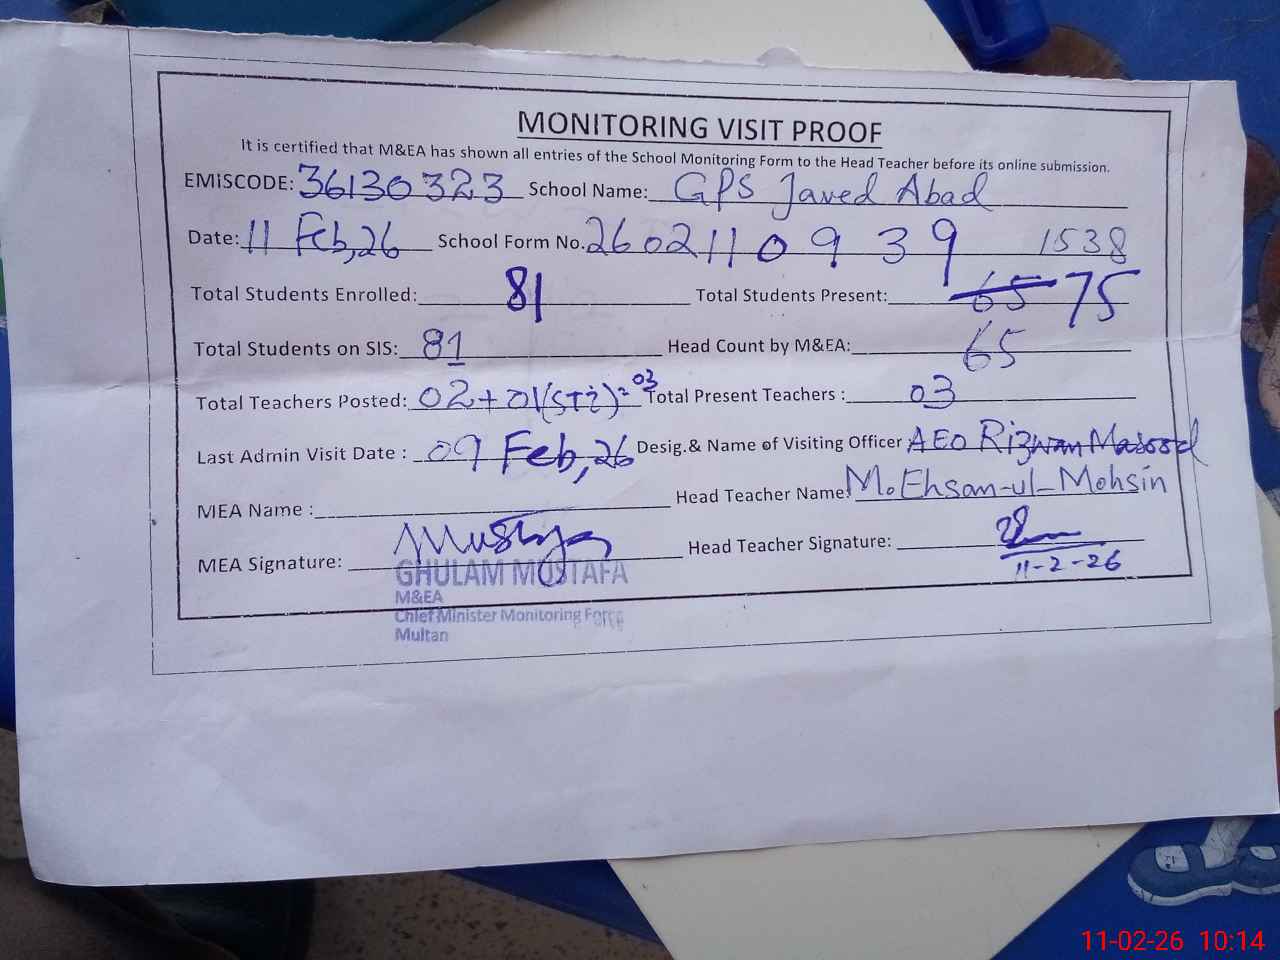 MONITORING VISIT PROOF
It is certified that M&EA has shown all entries of the School Monitoring Form to the Head Teacher before its online submission.
EMISCODE: 36130323 School Name: GPS Javed Abad
Date: 11 Feb,26 School Form No. 2602110939 1538
Total Students Enrolled: 81 Total Students Present: 65 75
Total Students on SIS: 81 Head Count by M&EA: 65
Total Teachers Posted: 02+01(STi)=03 Total Present Teachers : 03
Last Admin Visit Date : 09 Feb,26 Desig.& Name of Visiting Officer AEO Rizwan Masood
MEA Name : Head Teacher Name: M. Ehsan-ul-Mohsin
MEA Signature: Head Teacher Signature:
11-2-26
GHULAM MUSTAFA
M&EA
Chief Minister Monitoring Force
Multan
11-02-26 10:14